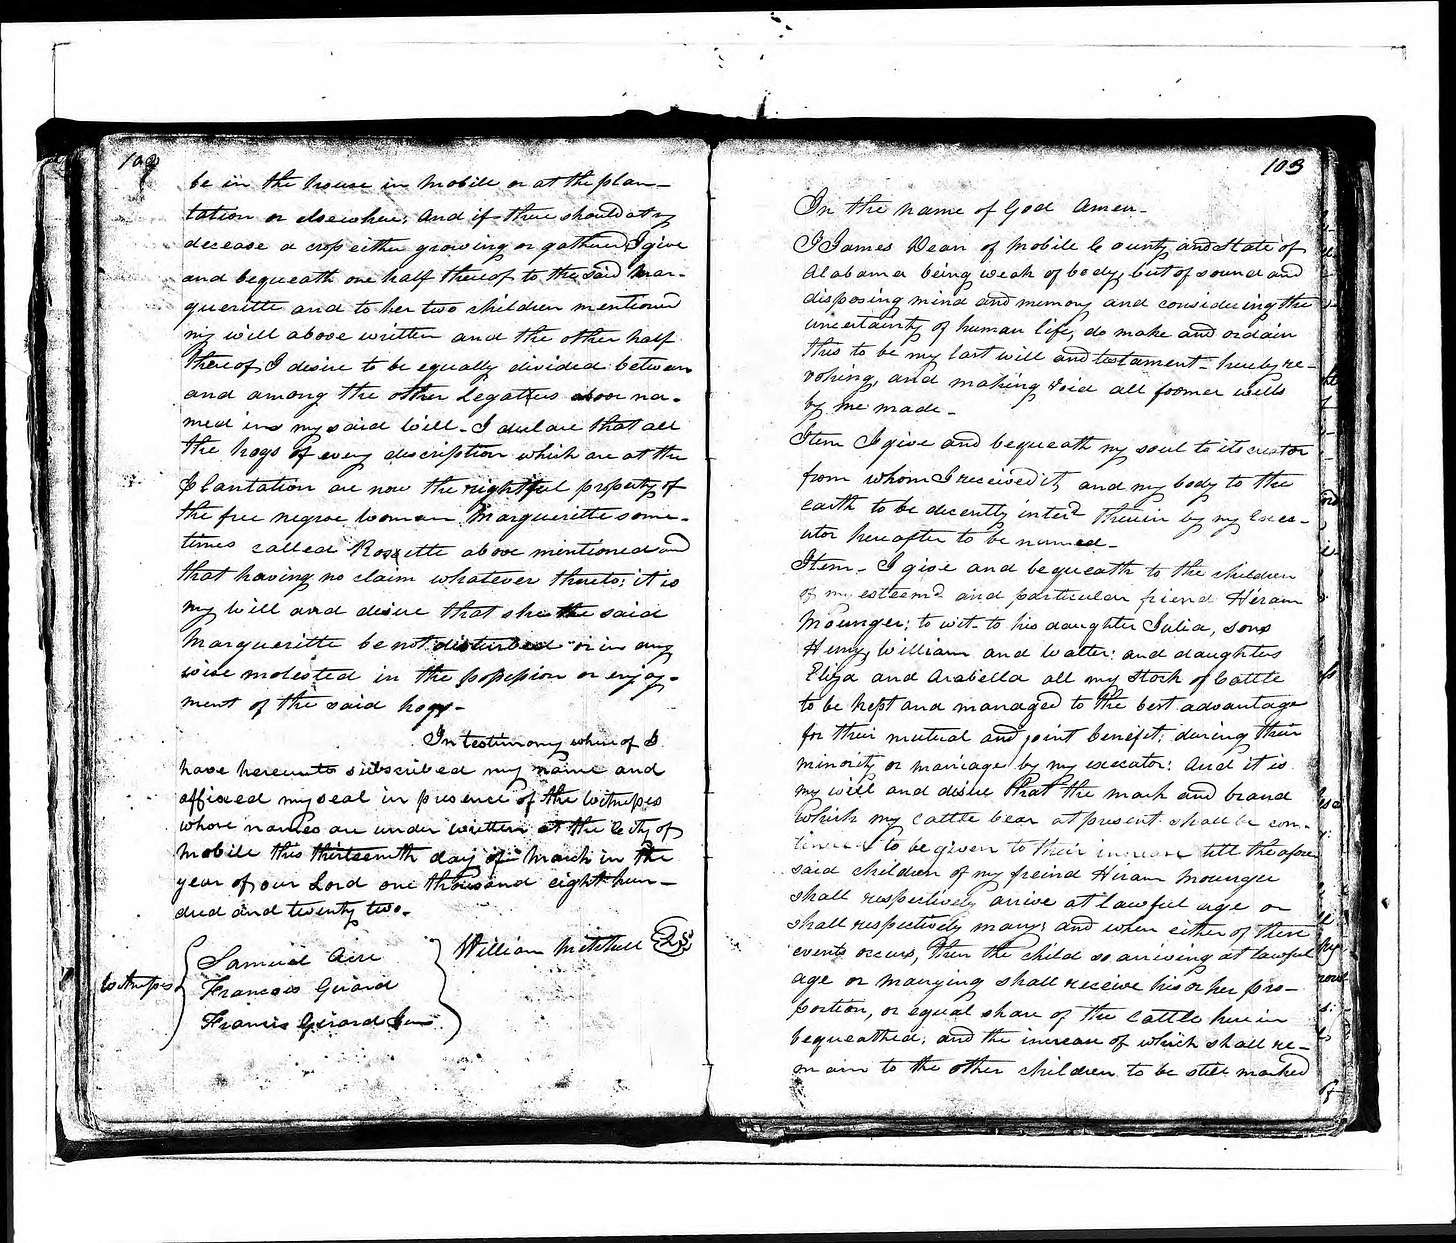 102
be in the house in Mobile or at the plan-
tation or elsewhere; And if there should at my
decease a crop either growing or gathered I give
and bequeath one half thereof to the said Mar-
gueritte and to her two children mentioned
my will above written and the other half
thereof I desire to be equally divided between
and among the other Legatees above na-
med in my said Will - I declare that all
the hogs of every description which are at the
Plantation are now the rightful property of
the free negroe woman Margueritte some-
times called Rosette above mentioned and
that having no claim whatever thereto; it is
my will and desire that she the said
Margueritte be not disturbed or in any
wise molested in the possession or enjoy-
ment of the said hogs -
In testimony whereof I
have hereunto subscribed my name and
affixed my seal in presence of the witnesses
whose names are under written at the City of
Mobile this thirteenth day of March in the
year of our Lord one thousand eight hun-
dred and twenty two.
Witnesses
Samuel
Francois Girard
Francis Girard Jun
William Mitchell LS
103
In the name of God Amen -
I James Dean of Mobile County and State of
Alabama being weak of body, but of sound and
disposing mind and memory and considering the
uncertainty of human life, do make and ordain
this to be my last will and testament - hereby re-
voking, and making void all former wills
by me made -
Item I give and bequeath my soul to its creator
from whom I received it, and my body to the
earth to be decently interd therein by my Exec-
utor hereafter to be named -
Item - I give and bequeath to the children
of my esteemd and particular friend Hiram
Mounger; to wit - to his daughter Julia, sons
Henry William and Walter; and daughters
Eliza and Arabella all my Stock of Cattle
to be kept and managed to the best advantage
for their mutual and joint benefit; during their
minority or marriage by my executor; And it is
my will and desire that the mark and brand
which my cattle bear at present shall be con-
tinued to be given to their increase till the afore
said children of my freind Hiram Mounger
shall respectively arrive at lawful age or
shall respectively marry; and when either of these
events occurs, then the child so arriving at lawful
age or marrying shall receive his or her pro-
portion, or equal share of the cattle herein
bequeathed; and the increase of which shall re-
main to the other children to be still marked